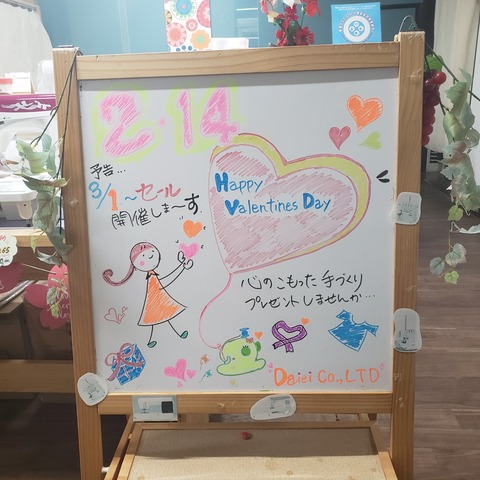 2・14
予告...
3/1～セール
開催しま～す
Happy
Valentines Day
心のこもった手づくり
プレゼントしませんか...
Daiei Co.,LTD